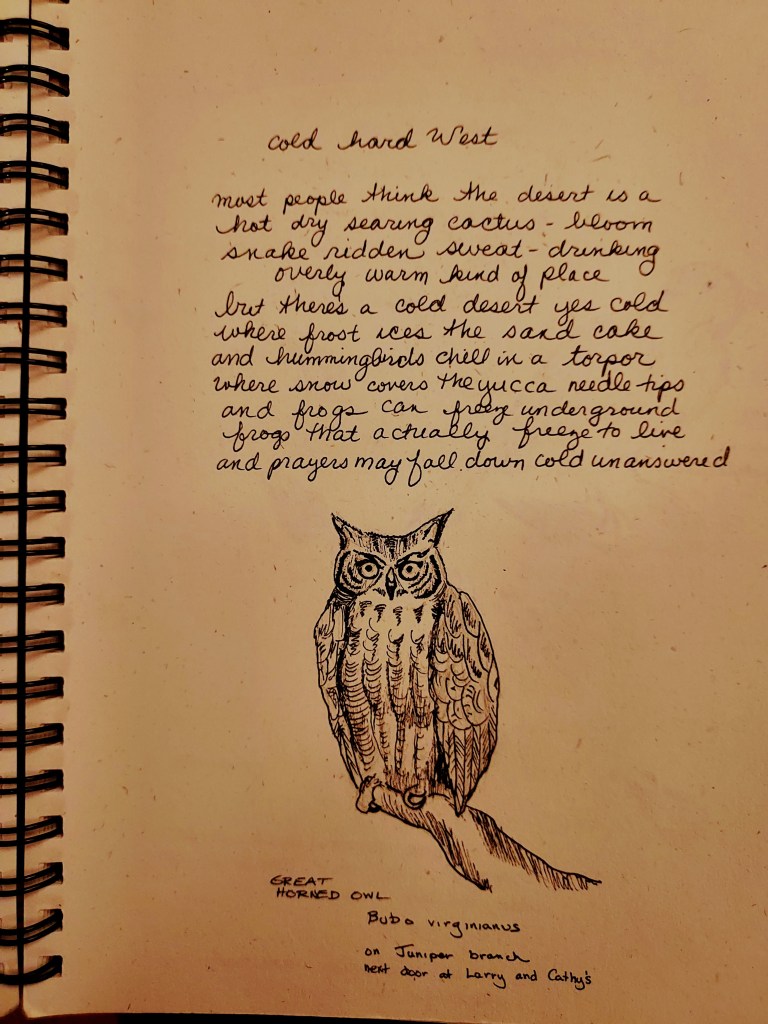 cold hard West
most people think the desert is a
hot dry searing cactus-bloom
snake ridden sweat-drinking
overly warm kind of place
but there's a cold desert yes cold
where frost ices the sand cake
and hummingbirds chill in a torpor
where snow covers the yucca needle tips
and frogs can freeze underground
frogs that actually freeze to live
and prayers may fall down cold unanswered
GREAT
HORNED OWL
Bubo virginianus
on Juniper branch
next door at Larry and Cathy's